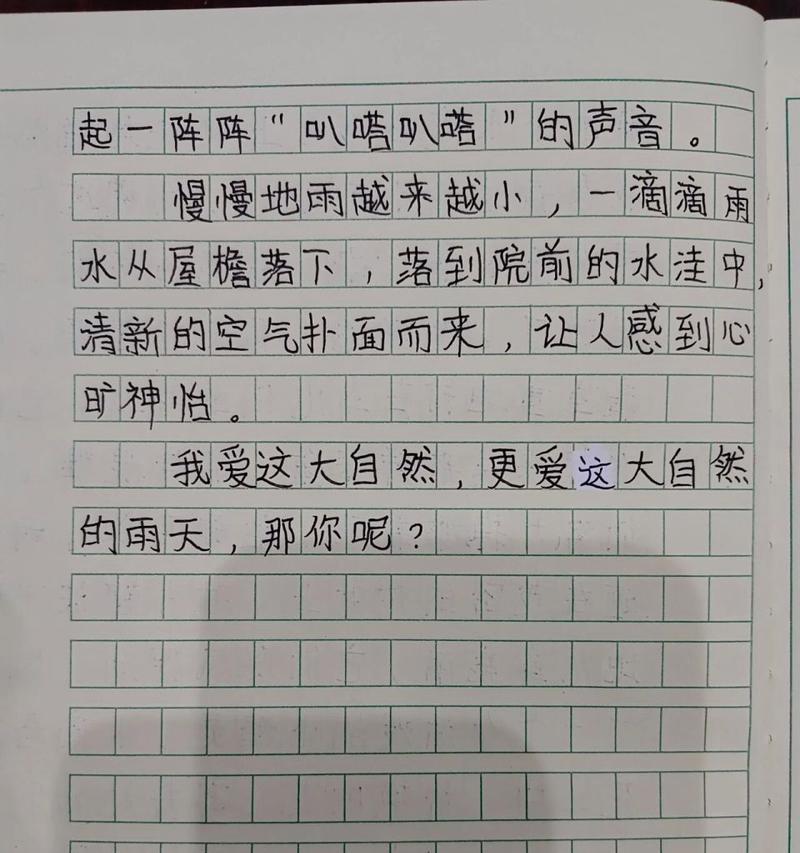 起一阵阵“叭嗒叭嗒”的声音。
慢慢地雨越来越小，一滴滴雨
水从屋檐落下，落到院前的水洼中，
清新的空气扑面而来，让人感到心
旷神怡。
我爱这大自然，更爱这大自然
的雨天，那你呢？